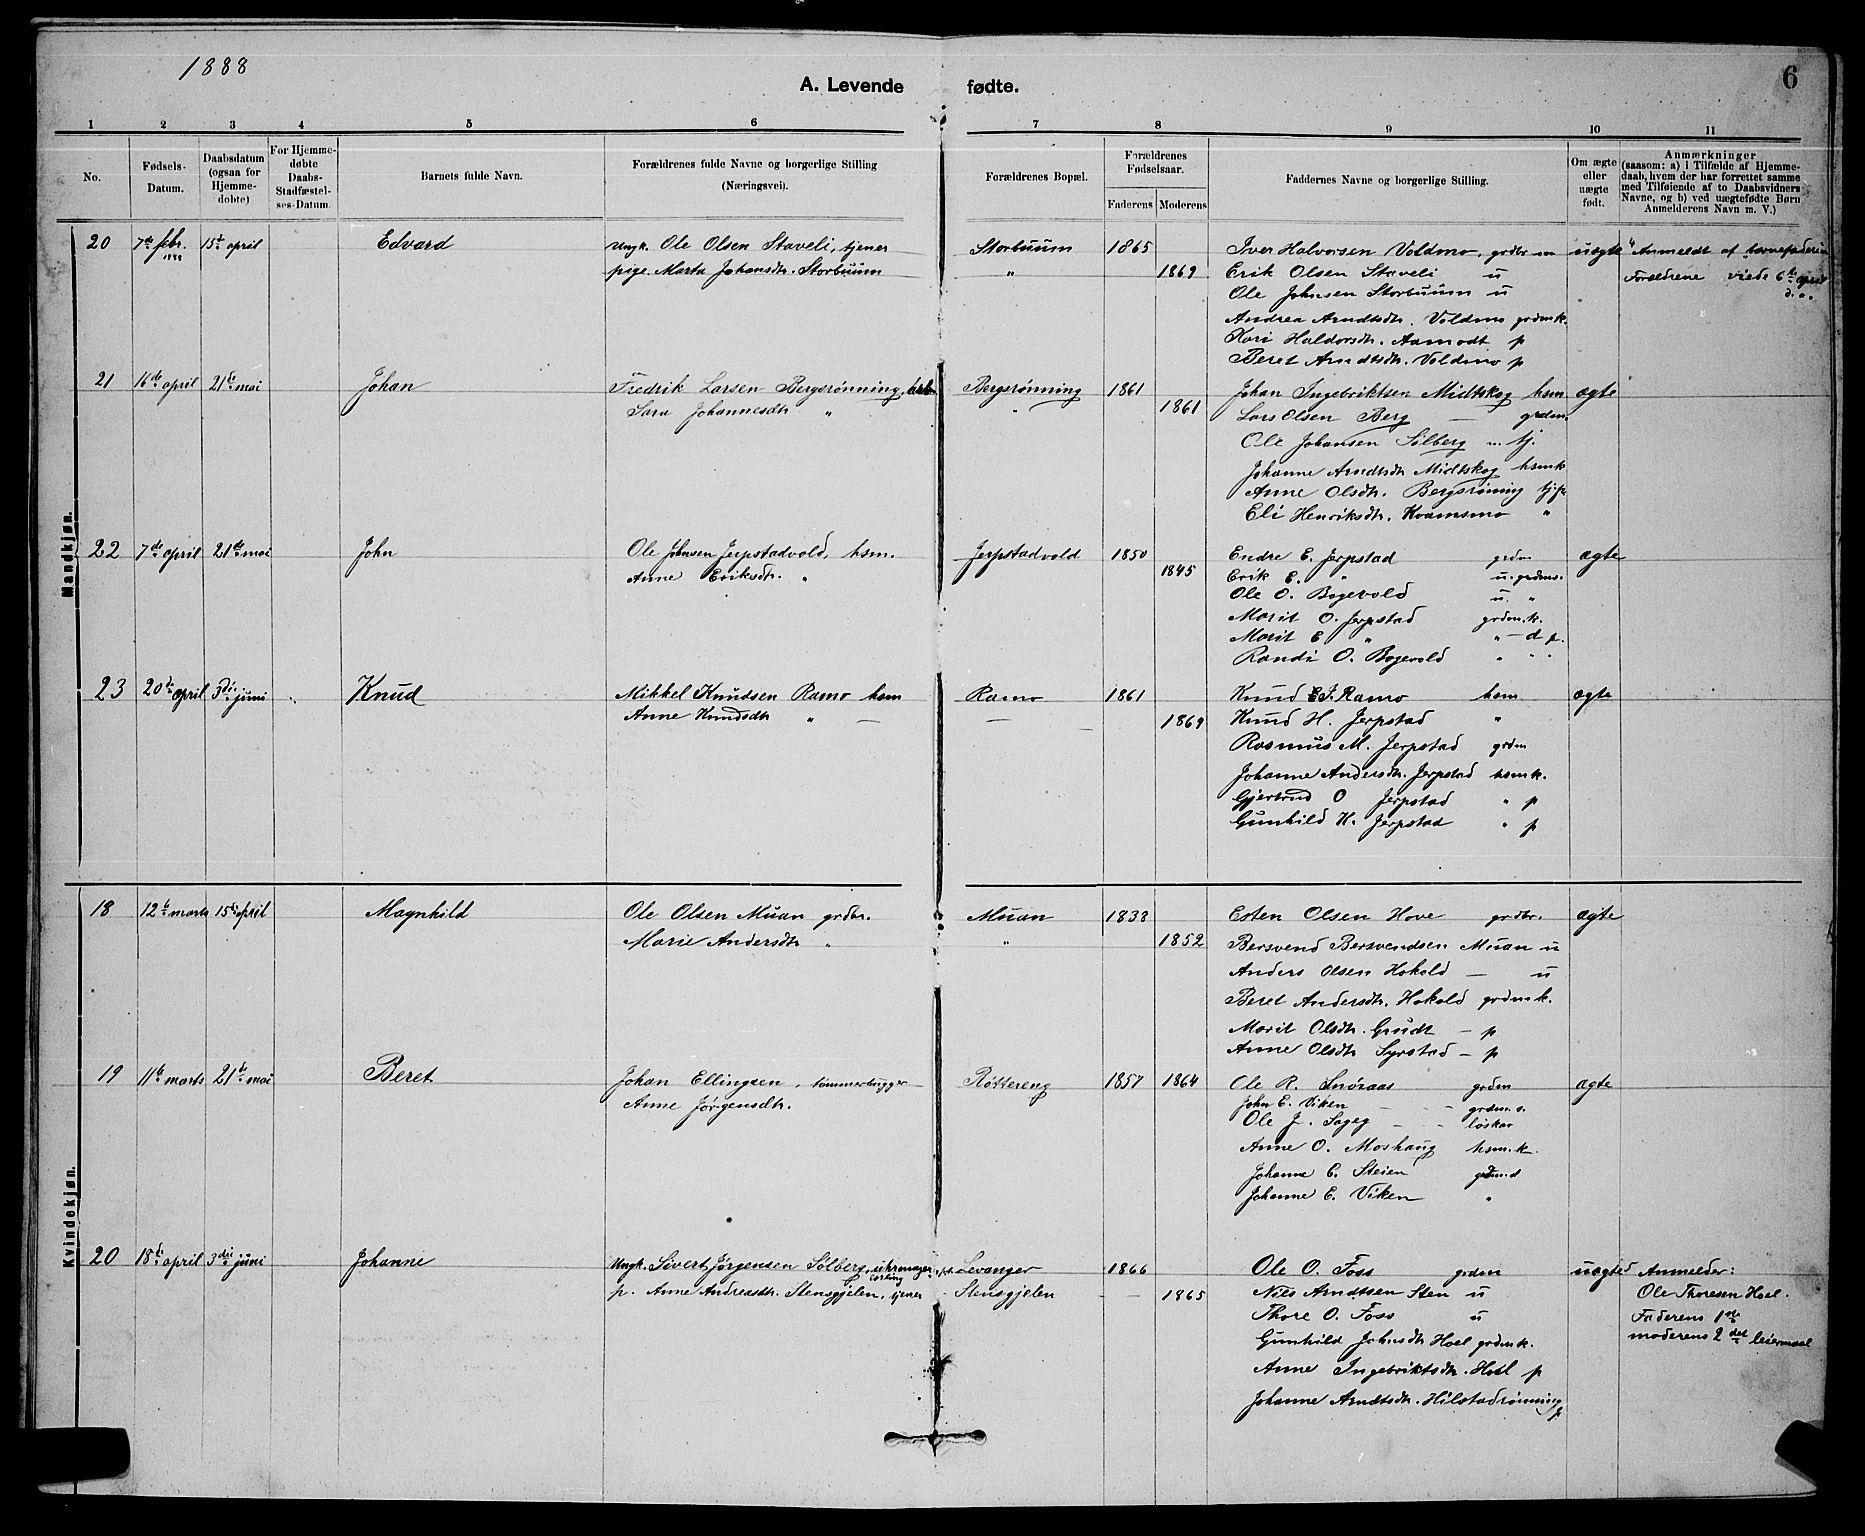 1888
A. Levende fødte.
6
1 2 3 4 5 6 7 8 9 10 11
No.
Fødsels-
Datum.
Daabsdatum
(ogsaa for
Hjemme-
døbte)
For Hjemme-
døbte
Daabs-
Stadfæstel-
ses-Datum.
Barnets fulde Navn.
Forældrenes fulde Navne og borgerlige Stilling
(Næringsvei).
Forældrenes Bopæl.
Forældrenes
Fødselsaar.
Faderens Moderens
Faddernes Navne og borgerlige Stilling.
Om ægte
eller
uægte
født.
Anmærkninger
(saasom: a) i Tilfælde af Hjemme-
daab, hvem der har forrettet samme
med Tilføiende af to Daabsvidners
Navne, og b) ved uægtefødte Børn
Anmelderens Navn m. V.)
Mandkjøn.
20 7de febr. 1888 15de april Edvard Ungk. Ole Olsen Staveli, tjener Storbuum 1865 Iver Halvorsen Voldmo, grdbr uægte Anmeldt af barnefaderen
pige Marta Johansdtr. Storbuum " 1869 Erik Olsen Staveli u Forældrene viede 6te april
Ole Johnsen Storbuum u d.a.
Andrea Arndtsdtr. Voldmo grdmk.
Kari Haldorsdtr. Aamodt p
Beret Arndtsdtr. Voldmo p
21 16de april 21de mai Johan Fredrik Larsen Bergsrønning, arb. Bergsrønning 1861 Johan Ingebriktsen Midtskog hsm ægte
Sara Johannesdtr " " 1861 Lars Olsen Berg grdm.
Ole Johansen Solberg u. tj.
Johanne Arndtsdtr Midtskog hsmk
Anne Olsdtr. Bergsrøning tjp
Eli Henriksdtr. Kvamsmo "
22 7de april 21de mai John Ole Johnsen Jerpstadvold, hsm. Jerpstadvold 1850 Endre E. Jerpstad grdm ægte
Anne Eriksdtr. " 1845 Erik E. " u. grdms.
Ole O. Bogevold u. "
Marit O. Jerpstad grdm.k.
Marit E " " - d p.
Randi O. Bogevold " " "
23 20de april 3die juni Knud Mikkel Knudsen Ramo hsm Ramo 1861 Knud E.J. Ramo hsm ægte
Anne Knudsdtr " — — 1869 Knud H. Jerpstad "
Rasmus M. Jerpstad grdm
Johanne Andersdtr. Jerpstad hsmk.
Gjertrud O Jerpstad " p
Gunhild H. Jerpstad " p
Kvindekjøn.
18 12te marts 15de april Magnhild Ole Olsen Muan grdbr. Muan 1838 Esten Olsen Hove grdbr. ægte
Marie Andersdtr " " 1852 Bersvend Bersvendsen Muan u
Anders Olsen Hokold — u
Beret Andersdtr. Hokold grdmk.
Marit Olsdtr. Grudt — p
Anne Olsdtr Syrstad — p
19 11te marts 21de mai Beret Johan Ellingsen, tømmerhugger Røttereng 1857 1864 Ole R. Snøraas grdm ægte
Anne Jørgensdtr. John E. Viken grdm.s.
Ole J. Sageg løskar
Anne O. Moshaug hsm.k.
Johanne E. Steien grdmd
Johanne E. Viken "
20 18de april 3die juni Johanne Ungk. Sivert Jørgensen Solberg, uhrmagerlærling Levanger 1866 Ole O. Foss grdm uægted Anmelder:
p. Anne Andreasdtr. Stensgjelen, tjener Stensgjelen 1865 Nils Arndtsen Sten u Ole Thoresen Hoel.
Thore O. Foss u Faderens 1ste
Gunhild Johnsdtr Hoel grdmk. moderens 2det leiermaal
Anne Ingebriktsdtr. Hoel p
Johanne Arndtsdtr. Hilstadrønning p